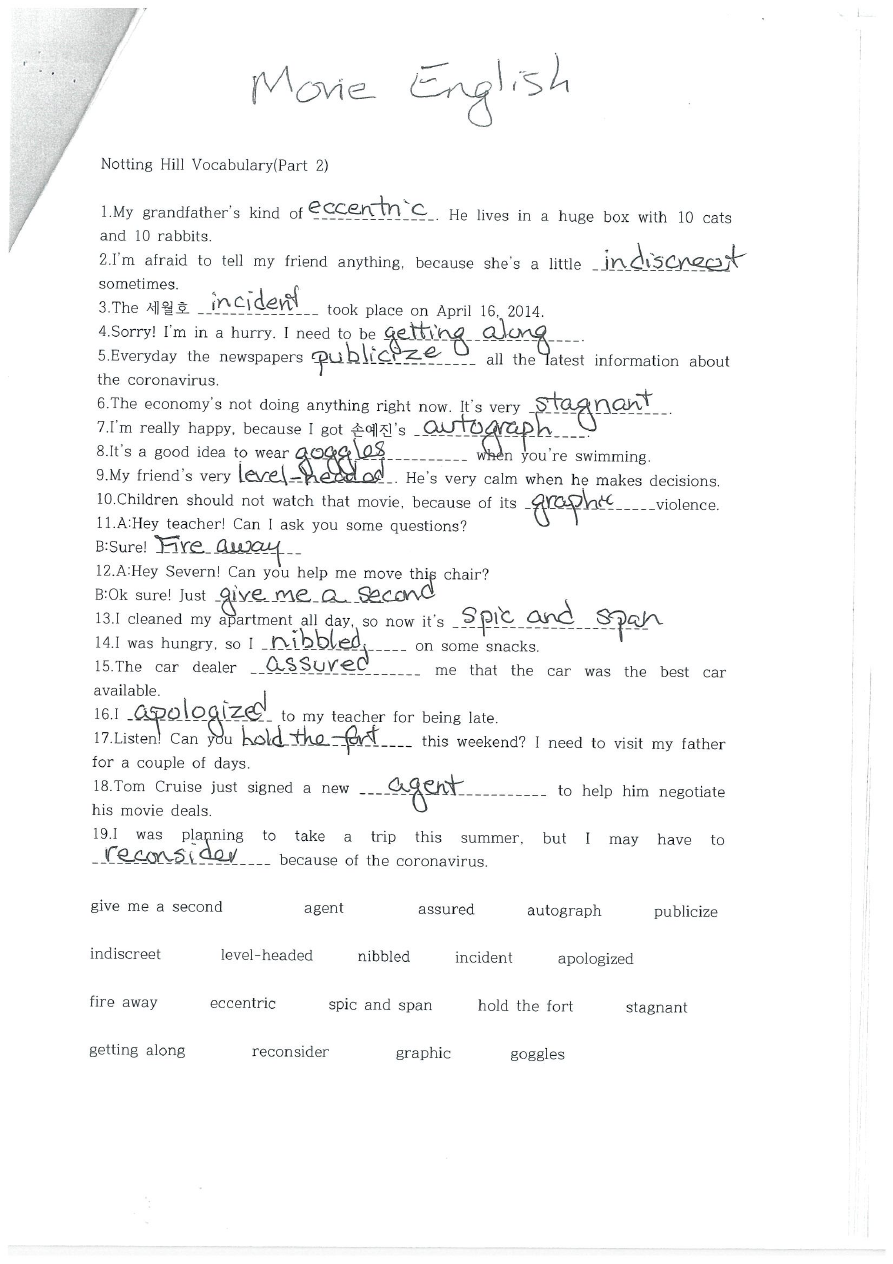 Movie English
Notting Hill Vocabulary(Part 2)
1.My grandfather's kind of eccentric. He lives in a huge box with 10 cats
and 10 rabbits.
2.I'm afraid to tell my friend anything, because she's a little indiscreet
sometimes.
3.The 세월호 incident took place on April 16, 2014.
4.Sorry! I'm in a hurry. I need to be getting along.
5.Everyday the newspapers publicize all the latest information about
the coronavirus.
6.The economy's not doing anything right now. It's very stagnant.
7.I'm really happy, because I got 손예진's autograph.
8.It's a good idea to wear goggles when you're swimming.
9.My friend's very level-headed. He's very calm when he makes decisions.
10.Children should not watch that movie, because of its graphic violence.
11.A:Hey teacher! Can I ask you some questions?
B:Sure! Fire away
12.A:Hey Severn! Can you help me move this chair?
B:Ok sure! Just give me a second
13.I cleaned my apartment all day, so now it's spic and span
14.I was hungry, so I nibbled on some snacks.
15.The car dealer assured me that the car was the best car
available.
16.I apologized to my teacher for being late.
17.Listen! Can you hold the fort this weekend? I need to visit my father
for a couple of days.
18.Tom Cruise just signed a new agent to help him negotiate
his movie deals.
19.I was planning to take a trip this summer, but I may have to
reconsider because of the coronavirus.
give me a second agent assured autograph publicize
indiscreet level-headed nibbled incident apologized
fire away eccentric spic and span hold the fort stagnant
getting along reconsider graphic goggles